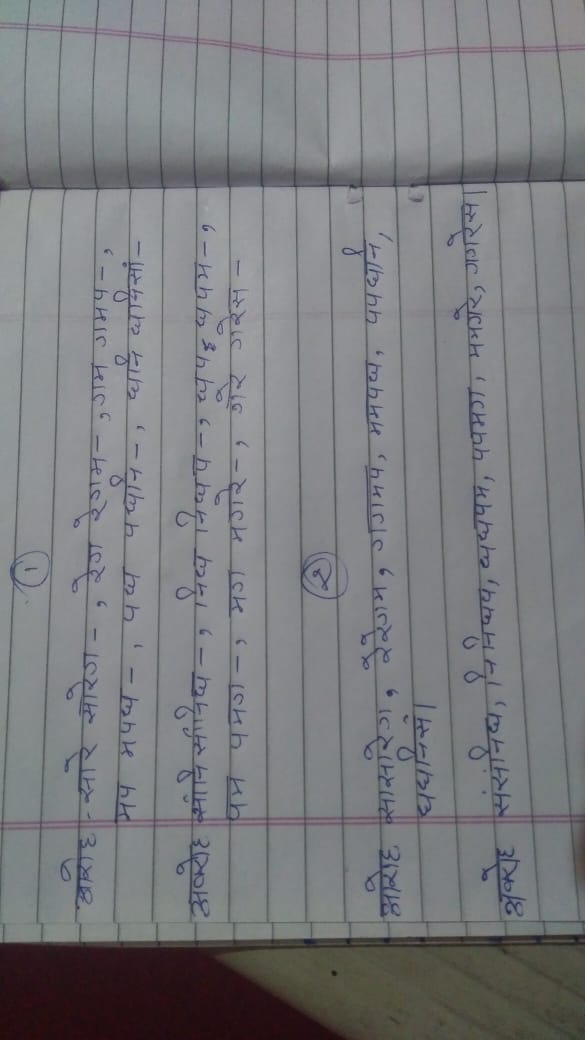 १
आरोह - सारे सारेग - , रेग रेगम - , गम गमप - ,
मप मपध - , पध पधनि - , धनि धनिसां -
अवरोह सांनि सांनिध - , निध निधप - , धप धपम - ,
पम पमग - , मग मगरे - , गरे गरेस -
२
आरोह सासारेग, रेरेगम, गगमप, ममपध, पपधनि,
धधनिसं।
अवरोह संसंनिध, निनिधप, धधपम, पपमग, ममगरे, गगरेस।